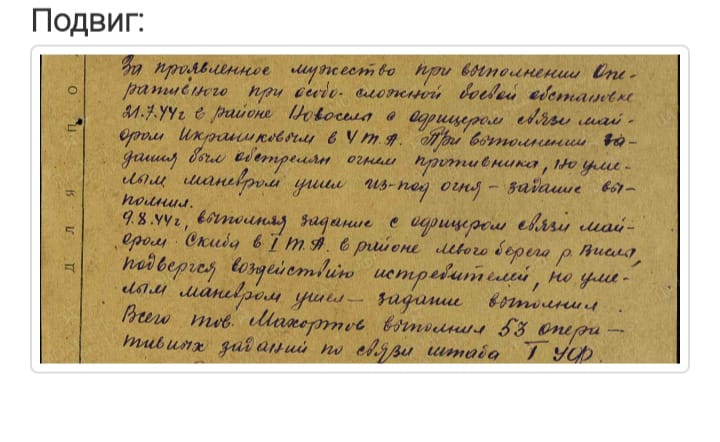 Подвиг:
За проявленное мужество при выполнении Опе-
ративного при особо-сложной боевой обстановке
21.7.44г в районе Новоселы с офицером связи май-
ором Икранниковым в V т.А. При выполнении за-
дания был обстрелян огнем противника, но уме-
лым маневром ушел из-под огня – задание вы-
полнил.
9.8.44г, выполняя задание с офицером связи май-
ором Скиба в I т.А. в районе левого берега р. Висла,
подвергся воздействию истребителей, но уме-
лым маневром ушел – задание выполнил.
Всего тов. Махортов выполнил 53 опера-
тивных заданий по связи штаба I УФ.
Д Л Я П О